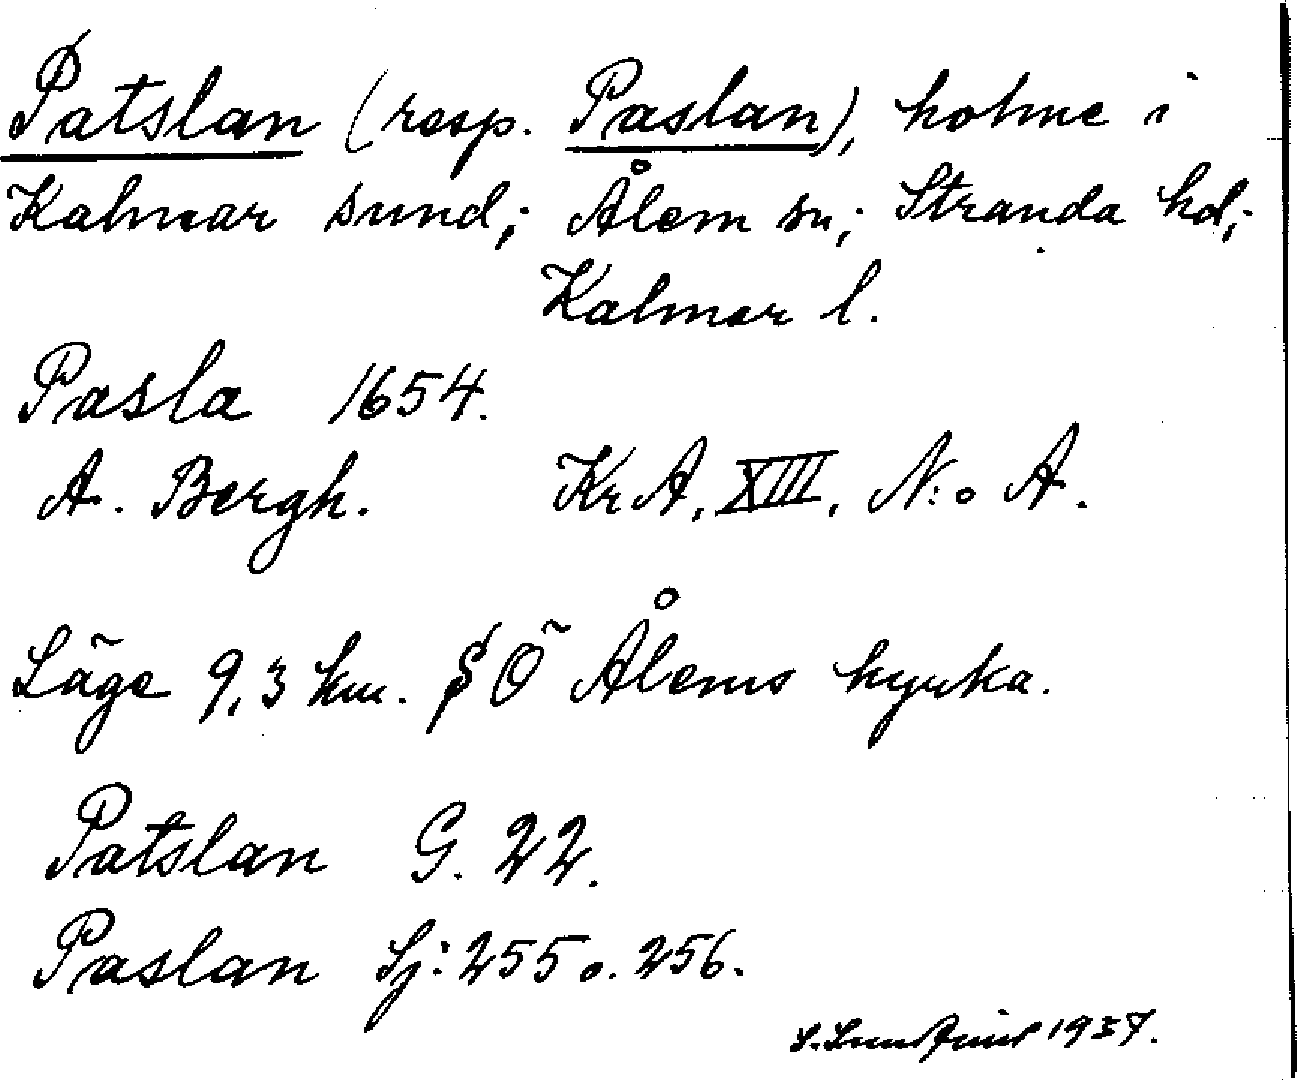 Patslan (resp. Paslan), holme i
Kalmar sund; Ålem sn; Stranda hd;
Kalmar l.
Pasla 1654.
A. Bergh. KrA. XIII. N:o A.
Läge 9,3 km. S Ö Ålems kyrka.
Patslan G. 22.
Paslan Sj: 255 o. 256.
1937.